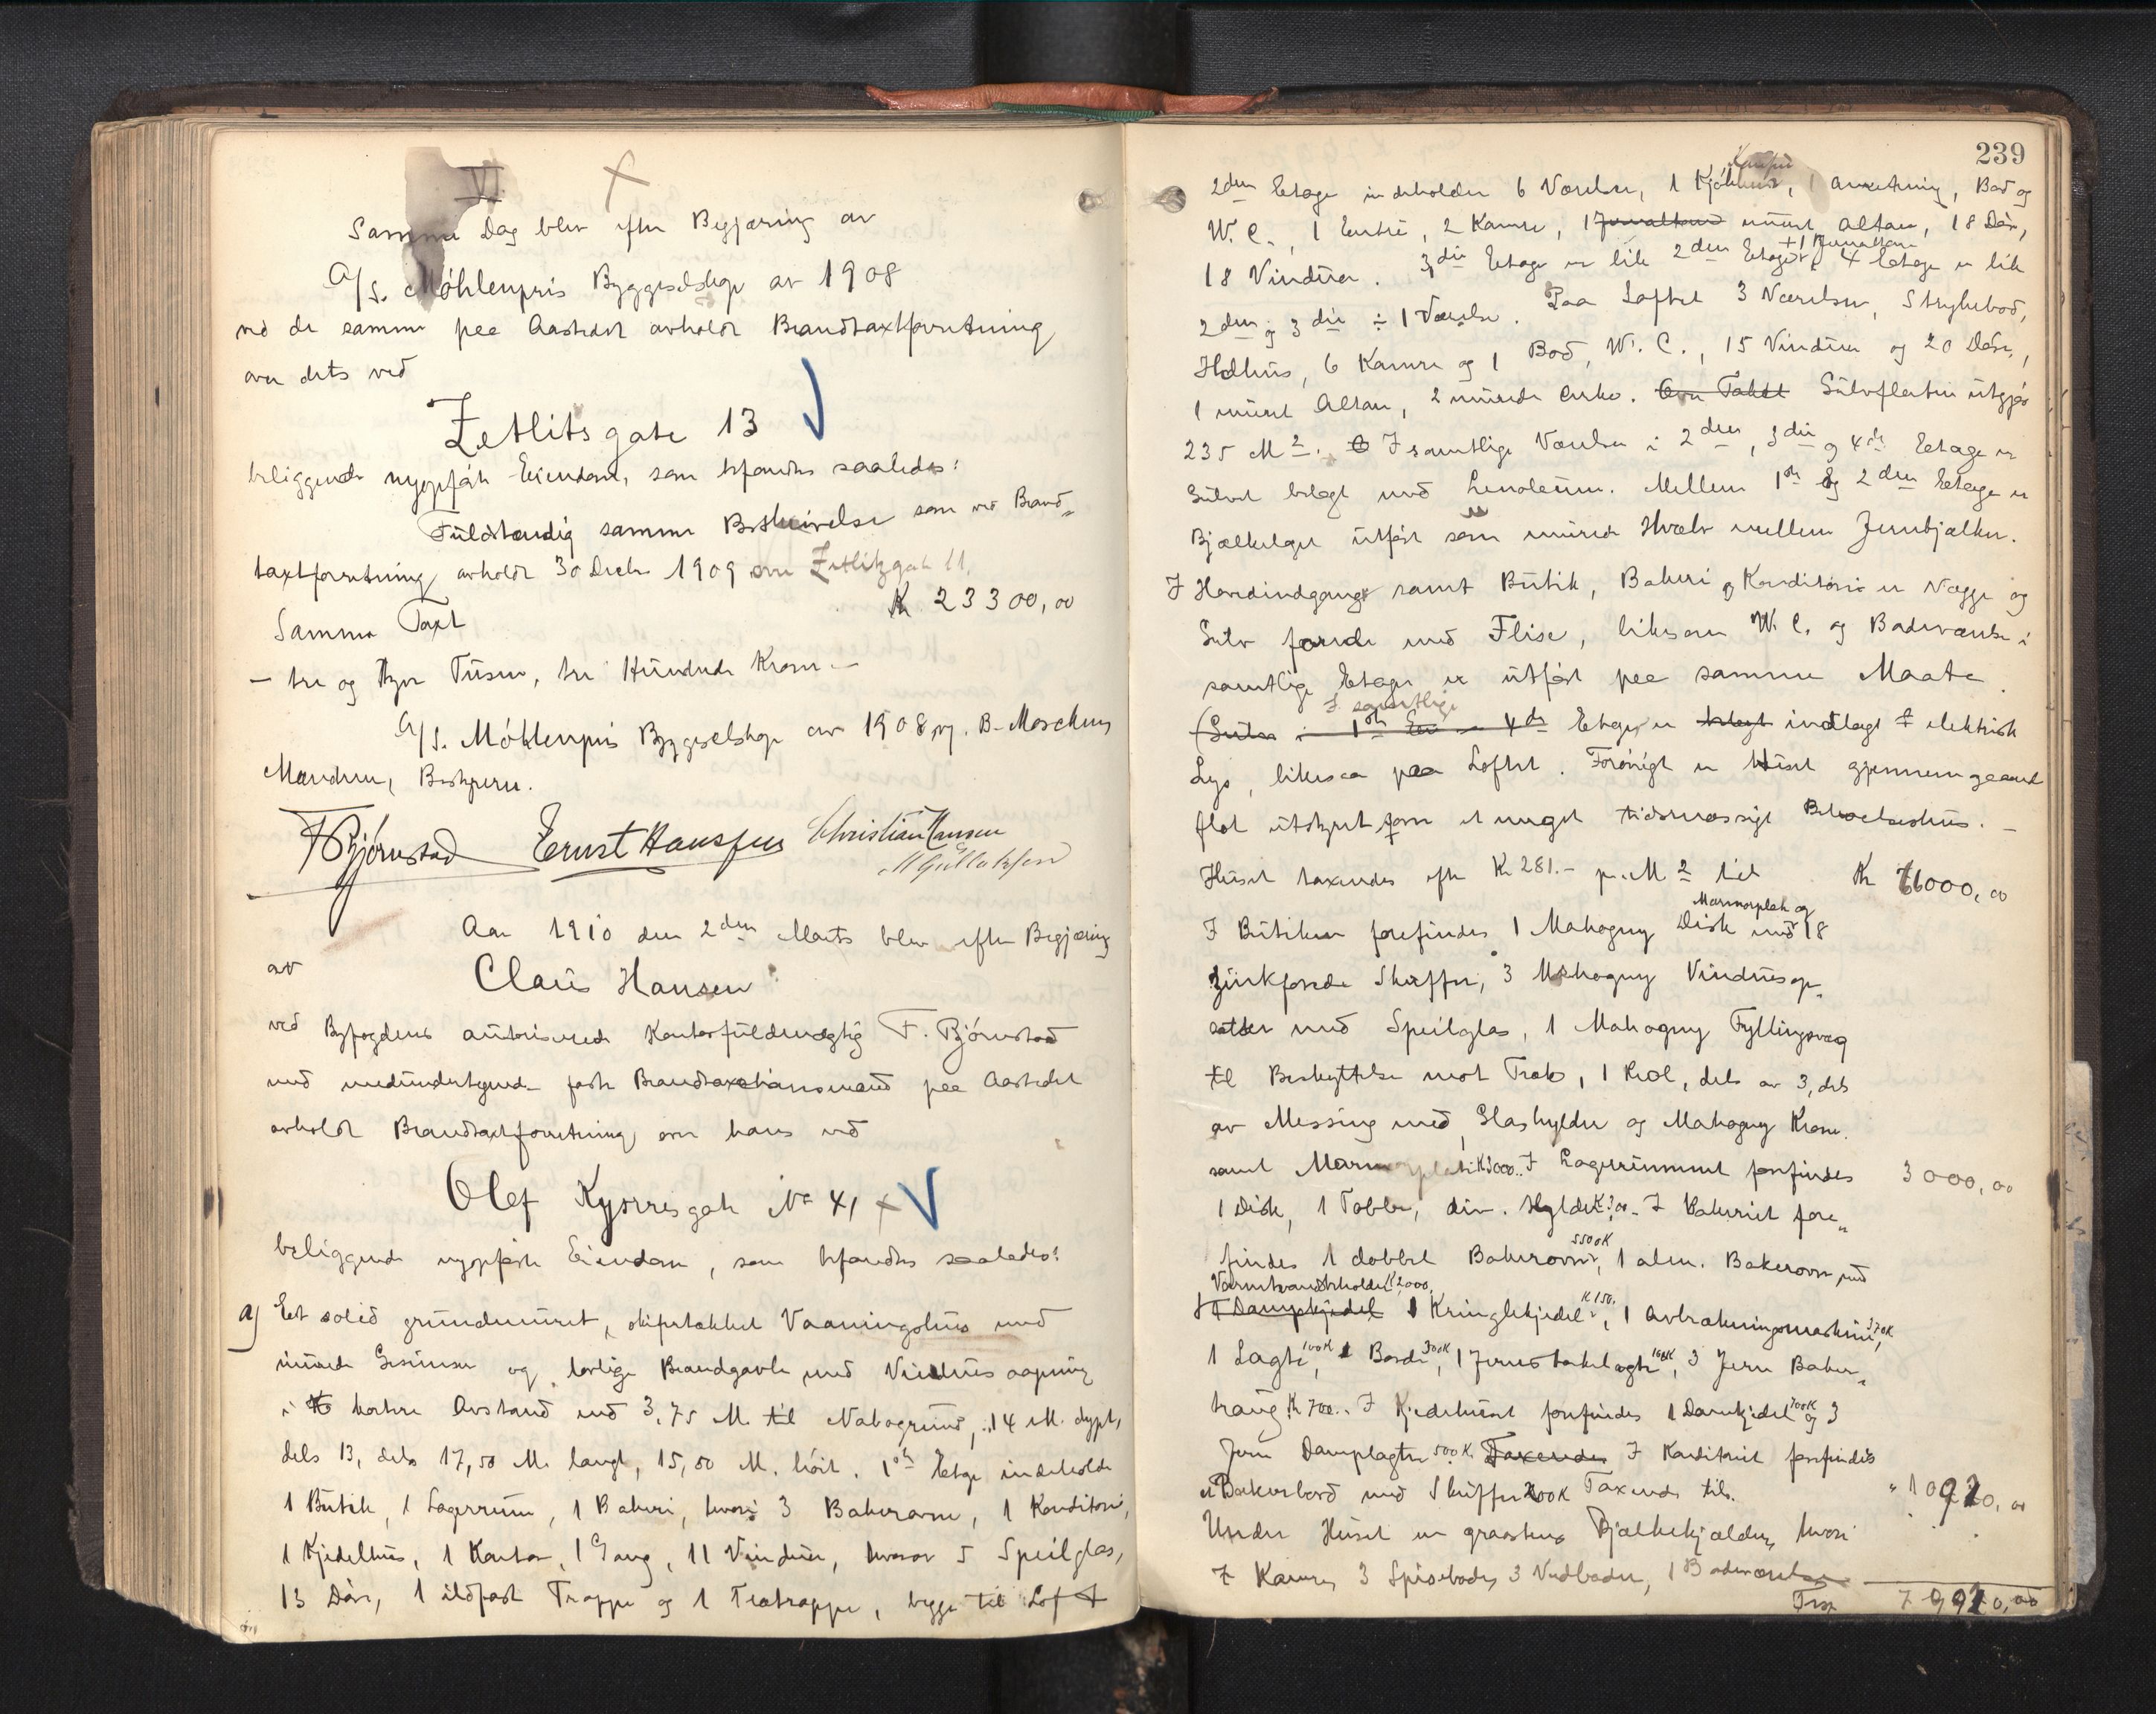 VI.
Samme Dag blev efter Begjæring av
A/S. Møhlenpris Byggeselskap av 1908
ved de samme paa Aastedet avholdt Brandtaxtforretning
over dets ved
Zetlitsgate 13
beliggende nyopført Eiendom, som befandtes saaledes:
Fuldstændig samme Beskrivelse som ved Brand-
taxtforretning avholdt 30 Decbr 1909 over Zetlitzgate 11.
Samme Taxt Kr 23300,00
– tre og tyve Tusen, tre Hundrede Kroner –
A/S. Møhlenpris Byggeselskap av 1908, v. B.
Mændene, Bestyreren.
F Bjørnstad Ernst Hanssen Christian Hansen
M Gullaksen
Aar 1910 den 2den Marts blev efter Begjæring
av Claus Hansen
ved Byfogdens autoriserede Kontorfuldmægtig F. Bjørnstad
med medundertegnede faste Brandtaxtionsmænd paa Aastedet
avholdt Brandtaxtforretning over hans ved
Olaf Kyrresgate No 41
beliggende nyopførte Eiendom, som befandtes saaledes:
a) Et solid grundmuret, skifertækket Vaaningshus med
murede Gesimser og lovlige Brandgavle med Vindusaapning
i kortere Avstand end 3,75 M. til Nabogrund, 14 M. dypt,
dels 13, dels 17,50 M. langt, 15,50 M. høit. 1ste Etage indeholder
1 Butik, 1 Lagerrum, 1 Bakeri, hvori 3 Bakerovne, 1 Konditori,
1 Kjedelhus, 1 Kontor, 1 Gang, 11 Vinduer, hvorav 5 Speilglas,
13 Døre, 1 ildfast Trappe og 1 Trætrappe, begge til Loft
239
2den Etage indeholder 6 Værelser, 1 Kjøkken, 1 Anretning, Bad og
W.C., 1 Entré, 2 Kamre, 1 Jernaltan muret Altan, 18 Døre,
18 Vinduer. 3die Etage er lik 2den Etage + 1 Jernaltan, 4 Etage er lik
2den og 3die ÷ 1 Værelse. Paa Loftet 3 Værelser, Strykebod,
6 Kamre og 1 Bod, W.C., 15 Vinduer og 20 Døre,
1 muret Altan, 2 murede Arker. Gulvflaten utgjør
235 M2. I samtlige Værelser i 2den, 3die og 4de Etage er
Gulvet belagt med Linoleum. Mellem 1ste og 2den Etage er
Bjælkelaget utført som murede Hvælv mellem Jernbjælker.
I Hovedindgangen samt Butik, Bakeri og Konditori er Vægge og
Gulv forede med Fliser, likesom W.C. og Badeværelse i
samtlige Etager er utført paa samme Maate.
I samtlige
(Gulv i 1ste 4de Etager er belagt indlagt elektrisk
Lys, likesaa paa Loftet. Forøvrigt er Huset gjennemgaaende
flot utstyret som et meget tidsmæssigt Beboelseshus. –
Huset taxeredes efter Kr 281.- pr. M2 til Kr 66000,00
Marmorplate og
I Butiken forefindes 1 Mahogny Disk med 18
zinkforede Skuffer, 3 Mahogny Vindusop-
satser med Speilglas, 1 Mahogny Fyllingsvæg
til Beskyttelse mot Træk, 1 Reol, dels av 3, dels
av Messing med Glashylder og Mahogny Krone
samt Marmorplate K 3000.. I Lagerrummet forefindes 3000,00
1 Disk, 1 Tablå, div. Hylder K 300.- I Bakeriet fore-
findes 1 dobbel Bakerovn 5500K, 1 alm. Bakerovn med
Varmtvandsbeholder K 2000,
1 Dampkjedel 1 Kringlekjedel K 150., 1 Avbrækningsmaskine 370K,
1 Lagte 100K, Borde 300K, 1 100K, 3 Jern Baker-
traug K 700.. I Kjedelhuset forefindes 1 Dampkjedel 700K og 3
Jern 500 K. Taxeredes I Konditoriet forefindes
et Bakerbord med Skuffer 200K Taxeredes til " 10920,00
Under Huset er graastens Bjælkekjælder, hvori
7 Kamre, 3 Spiseboder, 3 Vedboder, 1 Badeværelse
79920,00